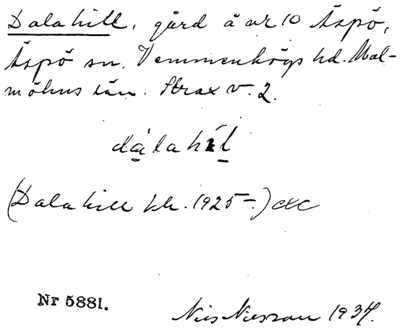 Dalahill, gård å nr 10 Äspö,
Äspö sn. Vemmenhögs hd. Mal-
möhus län. Strax v. 2.
dàlahíl
(Dalahill kb. 1925–) etc
Nr 5881.
Nils Nilsson 1934.